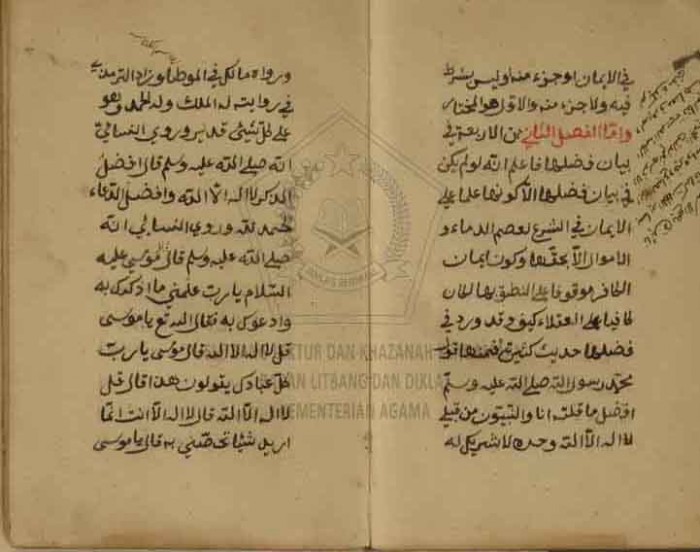 في الايمان اوجزء منه اوليس بشرط
فيه ولاجزء منه والاول هو المختار
واما الفصل الثاني من الاربعة في
بيان فضلها فاعلم انه لو لم يكن
في بيان فضلها الا كونها علما على
الايمان في الشرع لعصم الدماء و
الاموال الا بحقها وكون ايمان
الكافر موقوفا على النطق بها لكان
كافيا على العقلاء كيف وقد ورد في
فضلها حديث كثيرة فمنها قول
محمد رسول الله صلى الله عليه وسلم
افضل ما قلته انا والنبيون من قبلي
لا اله الا الله وحده لا شريك له
ورواه مالك في الموطا وزاد الترمذي
في روايته له الملك وله الحمد وهو
على كل شيئ قدير وروي النسائي
انه صلى الله عليه وسلم قال افضل
الذكر لا اله الا الله وافضل الدعاء
الحمد لله وروي النسائي انه
صلى الله عليه وسلم قال موسى عليه
السلام يا رب علمني ما اذكرك به
وادعوك به فقال الله تع يا موسى
قل لا اله الا الله قال موسى يا رب
كل عبادك يقولون هذا قال قل
لا اله الا الله قال لا اله الا انت انما
اريد شيئا تخصني به قال يا موسى
IKHLAS BERAMAL
LEKTUR DAN KHAZANAH
LITBANG DAN DIKLAT
KEMENTERIAN AGAMA